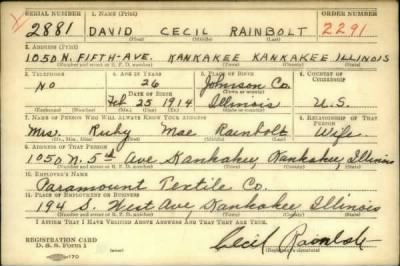 SERIAL NUMBER 1. NAME (Print) ORDER NUMBER
2881 DAVID CECIL RAINBOLT 2291
(First) (Middle) (Last)
2. ADDRESS (Print)
1050 N. FIFTH-AVE. KANKAKEE KANKAKEE ILLINOIS
(Number and street or R. F. D. number) (Town) (County) (State)
3. TELEPHONE 4. AGE IN YEARS 5. PLACE OF BIRTH 6. COUNTRY OF CITIZENSHIP
NO 26 Johnson Co.
DATE OF BIRTH
Feb 25 1914 Illinois U.S.
(Exchange) (Number) (Mo.) (Day) (Yr.) (State or country)
7. NAME OF PERSON WHO WILL ALWAYS KNOW YOUR ADDRESS 8. RELATIONSHIP OF THAT PERSON
Mrs. Ruby Mae Rainbolt Wife
(Mr., Mrs., Miss) (First) (Middle) (Last)
9. ADDRESS OF THAT PERSON
1050 N. 5th Ave Kankakee, Kankakee Illinois
(Number and street or R. F. D. number) (Town) (County) (State)
10. EMPLOYER'S NAME
Paramount Textile Co.
11. PLACE OF EMPLOYMENT OR BUSINESS
194 S. West Ave, Kankakee Illinois
(Number and street or R. F. D. number) (Town) (County) (State)
I AFFIRM THAT I HAVE VERIFIED ABOVE ANSWERS AND THAT THEY ARE TRUE.
REGISTRATION CARD
D. S. S. Form 1
Cecil Rainbolt
(Registrant's signature)